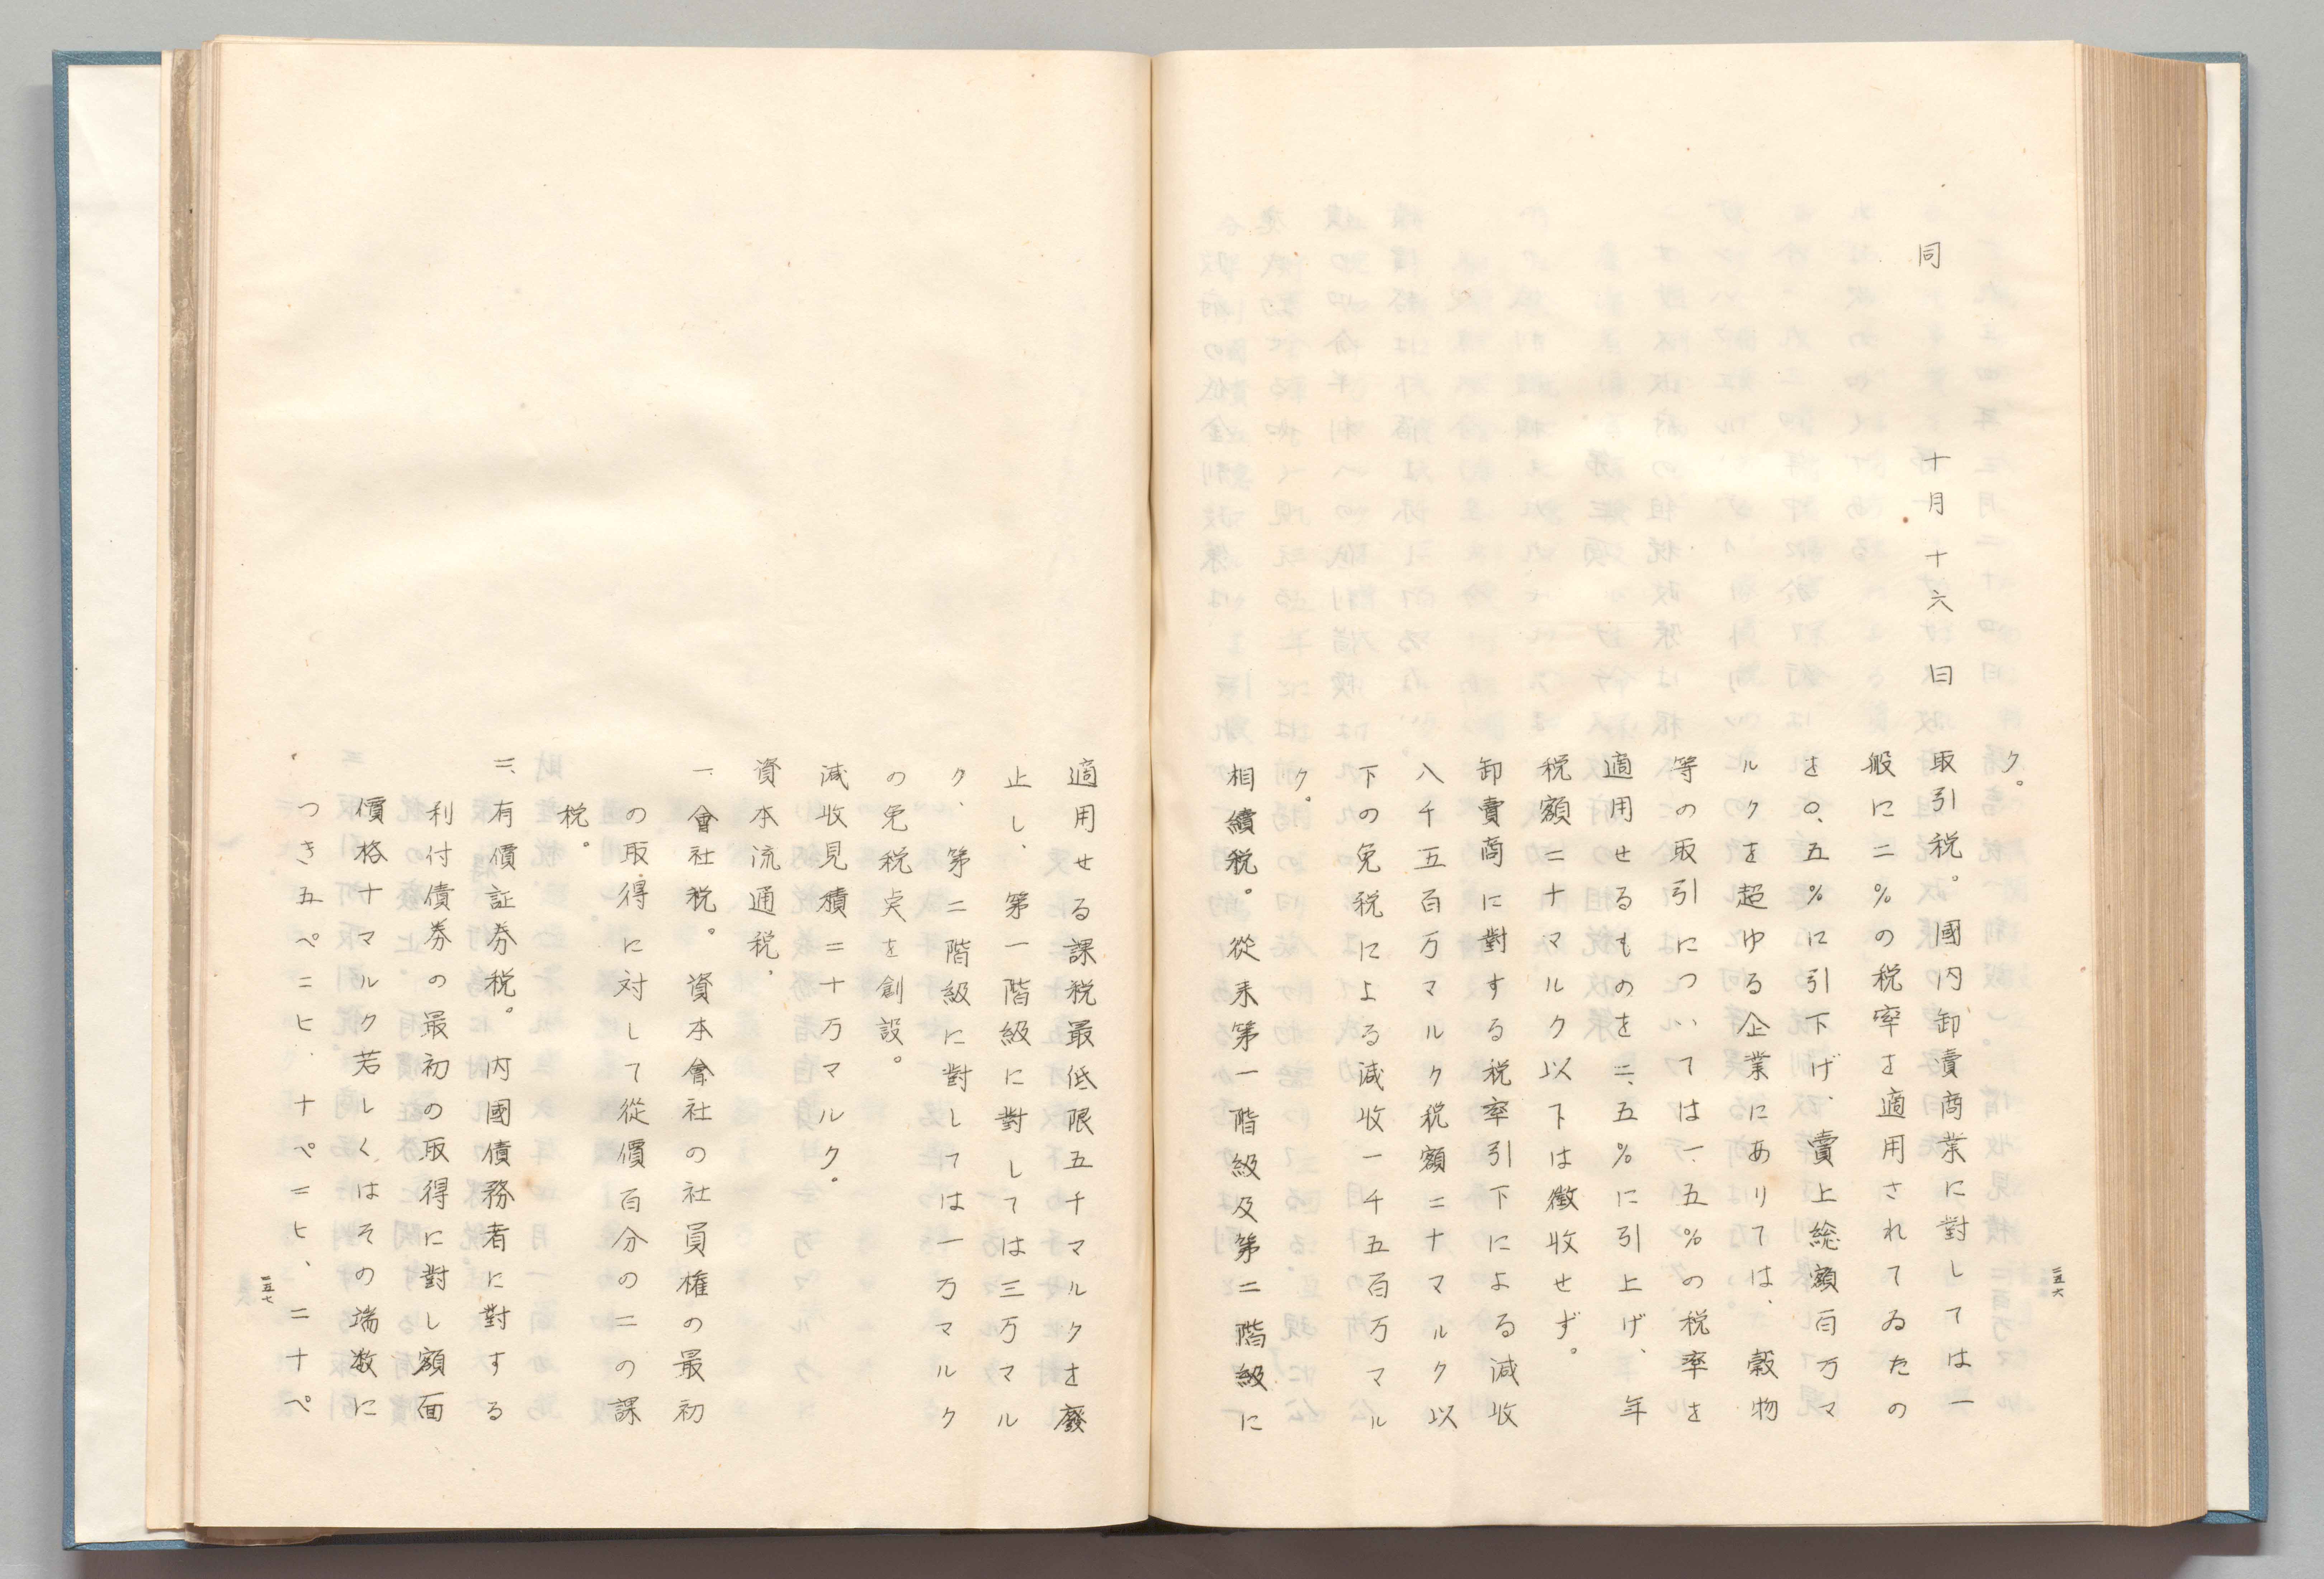 ク。
同　十月十六日　取引税。國内卸賣商業に對しては一
般に二％の税率を適用されてゐたの
を〇、五％に引下げ、賣上総額百万マ
ルクを超ゆる企業にありては、穀物
等の取引については一、五％の税率を
適用せるものを二、五％に引上げ、年
税額二十マルク以下は徴收せず。
卸賣商に對する税率引下による減收
八千五百万マルク税額二十マルク以
下の免税による減收一千五百万マル
ク。
相續税。從来第一階級及第二階級に
二五六
適用せる課税最低限五千マルクを廢
止し、第一階級に對しては三万マル
ク、第二階級に對しては一万マルク
の免税点を創設。
減收見積二十万マルク。
資本流通税、
一、會社税。資本會社の社員権の最初
の取得に対して從價百分の二の課
税。
二、有價証券税。内國債務者に對する
利付債券の最初の取得に對し額面
價格十マルク若しくはその端数に
つき五ペニヒ、十ペニヒ、二十ペ
二五七